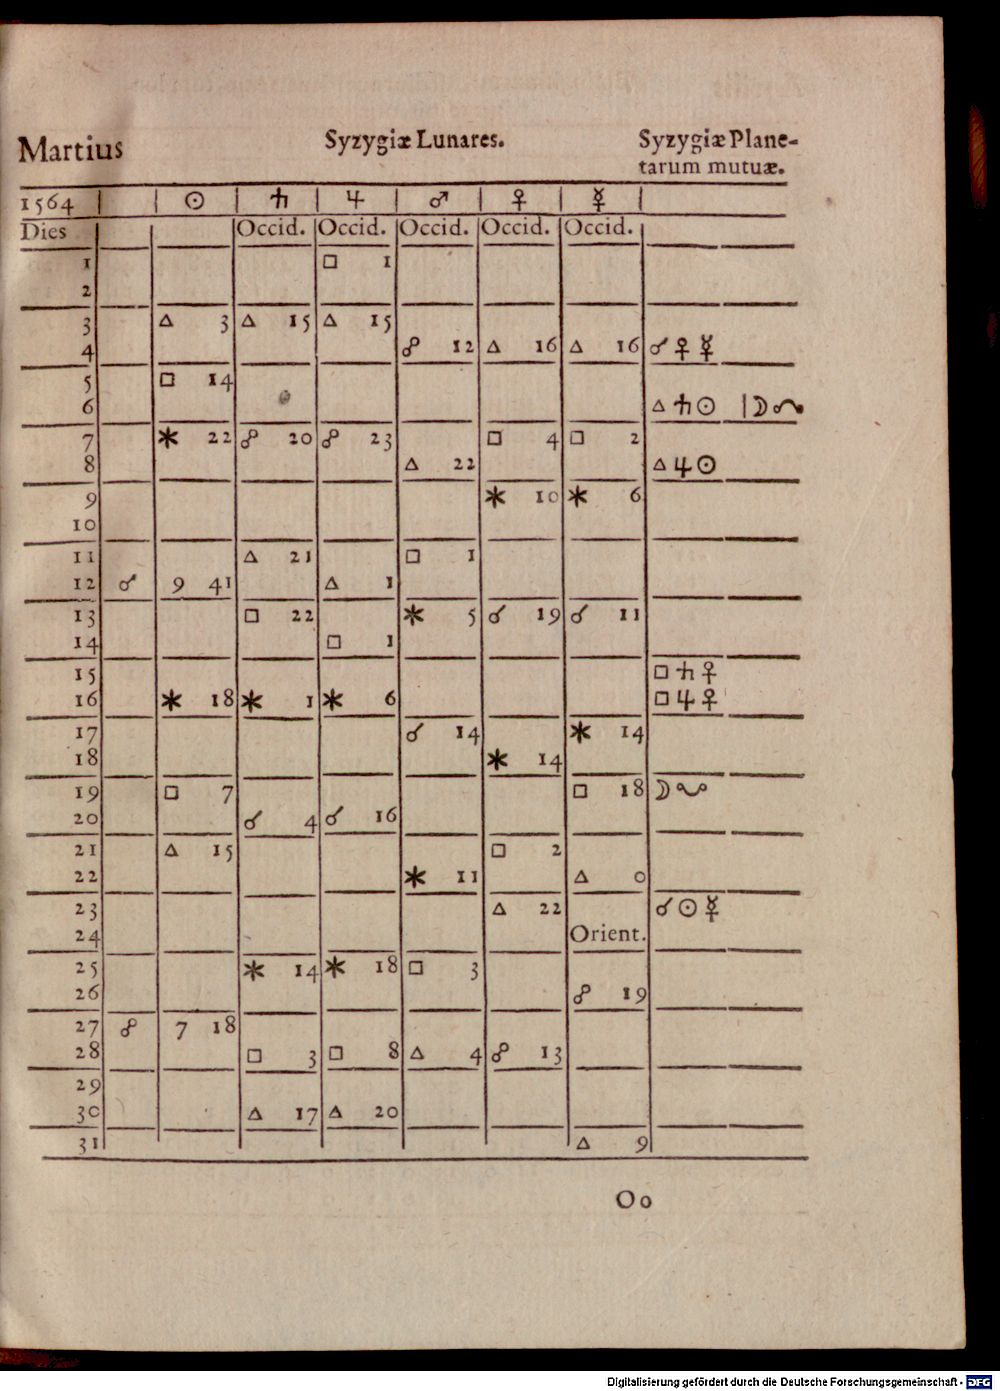 Martius Syzygiæ Lunares. Syzygiæ Plane-
tarum mutuæ.
1564 ☉ ♄ ♃ ♂ ♀ ☿
Dies Occid. Occid. Occid. Occid. Occid.
1 □ 1
2
3 △ 3 △ 15 △ 15
4 ☍ 12 △ 16 △ 16 ☌ ♀ ☿
5 □ 14
6 △ ♄ ☉ ☽ ☊
7 ✶ 22 ☍ 20 ☍ 23 □ 4 □ 2
8 △ 22 △ ♃ ☉
9 ✶ 10 ✶ 6
10
11 △ 21 □ 1
12 ☌ 9 41 △ 1
13 □ 22 ✶ 5 ☌ 19 ☌ 11
14 □ 1
15 □ ♄ ♀
16 ✶ 18 ✶ 1 ✶ 6 □ ♃ ♀
17 ☌ 14 ✶ 14
18 ✶ 14
19 □ 7 □ 18 ☽ ☋
20 ☌ 4 ☌ 16
21 △ 15 □ 2
22 ✶ 11 △ 0
23 △ 22 ☌ ☉ ☿
24 Orient.
25 ✶ 14 ✶ 18 □ 3
26 ☍ 19
27 ☍ 7 18
28 □ 3 □ 8 △ 4 ☍ 13
29
30 △ 17 △ 20
31 △ 9
Oo
Digitalisierung gefördert durch die Deutsche Forschungsgemeinschaft - DFG